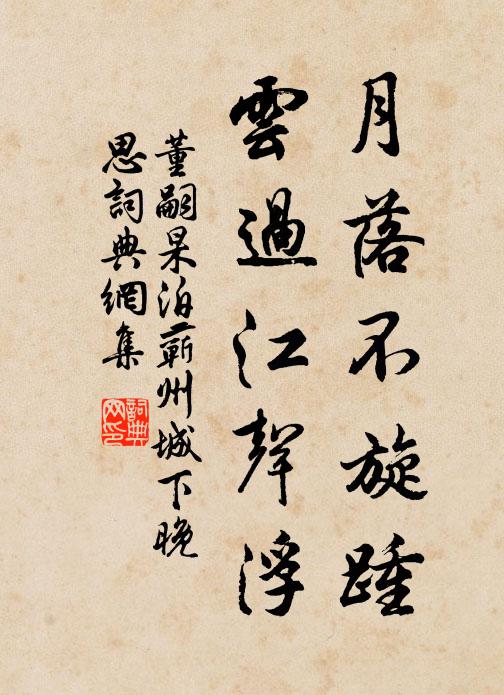 月落不旋踵
雲過江聲浮
董嗣杲泊蘄州城下晚
思詞典網集
詞典
网印